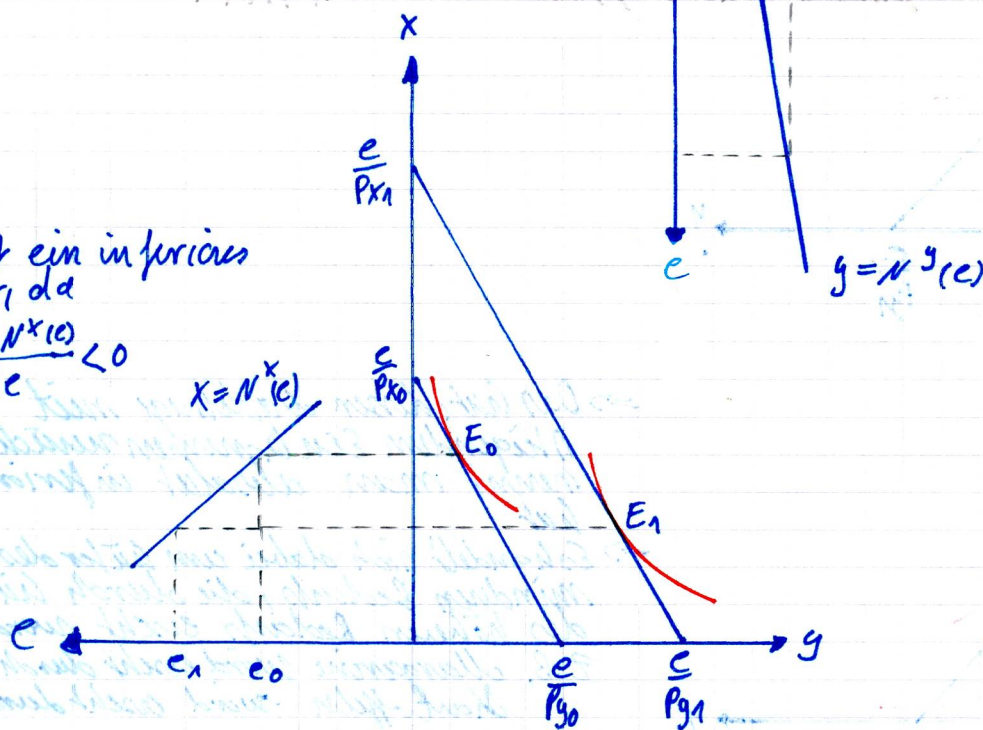 x
e
PX1
ein inferiores
da
N^x(e)
e
<0
e
PX0
x = N^x(e)
E0
E1
e
y = N^y(e)
e
e1
e0
e
Py0
e
Py1
y